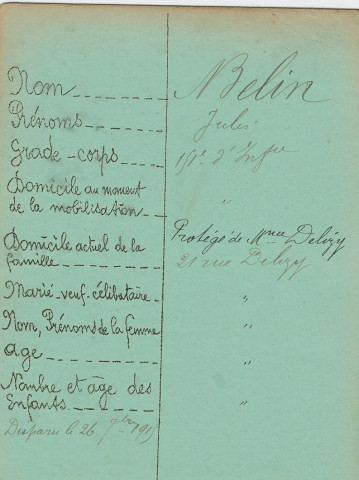 Nom Belin
Prénoms Jules
Grade-corps 151e d'Infie
Domicile au moment
de la mobilisation "
Domicile actuel de la Protégé de Mme Delizy
famille 21 rue Delizy
Marié-veuf-célibataire "
Nom, Prénoms de la femme "
age "
Nombre et âge des
Enfants "
Disparu le 26 7bre 1915